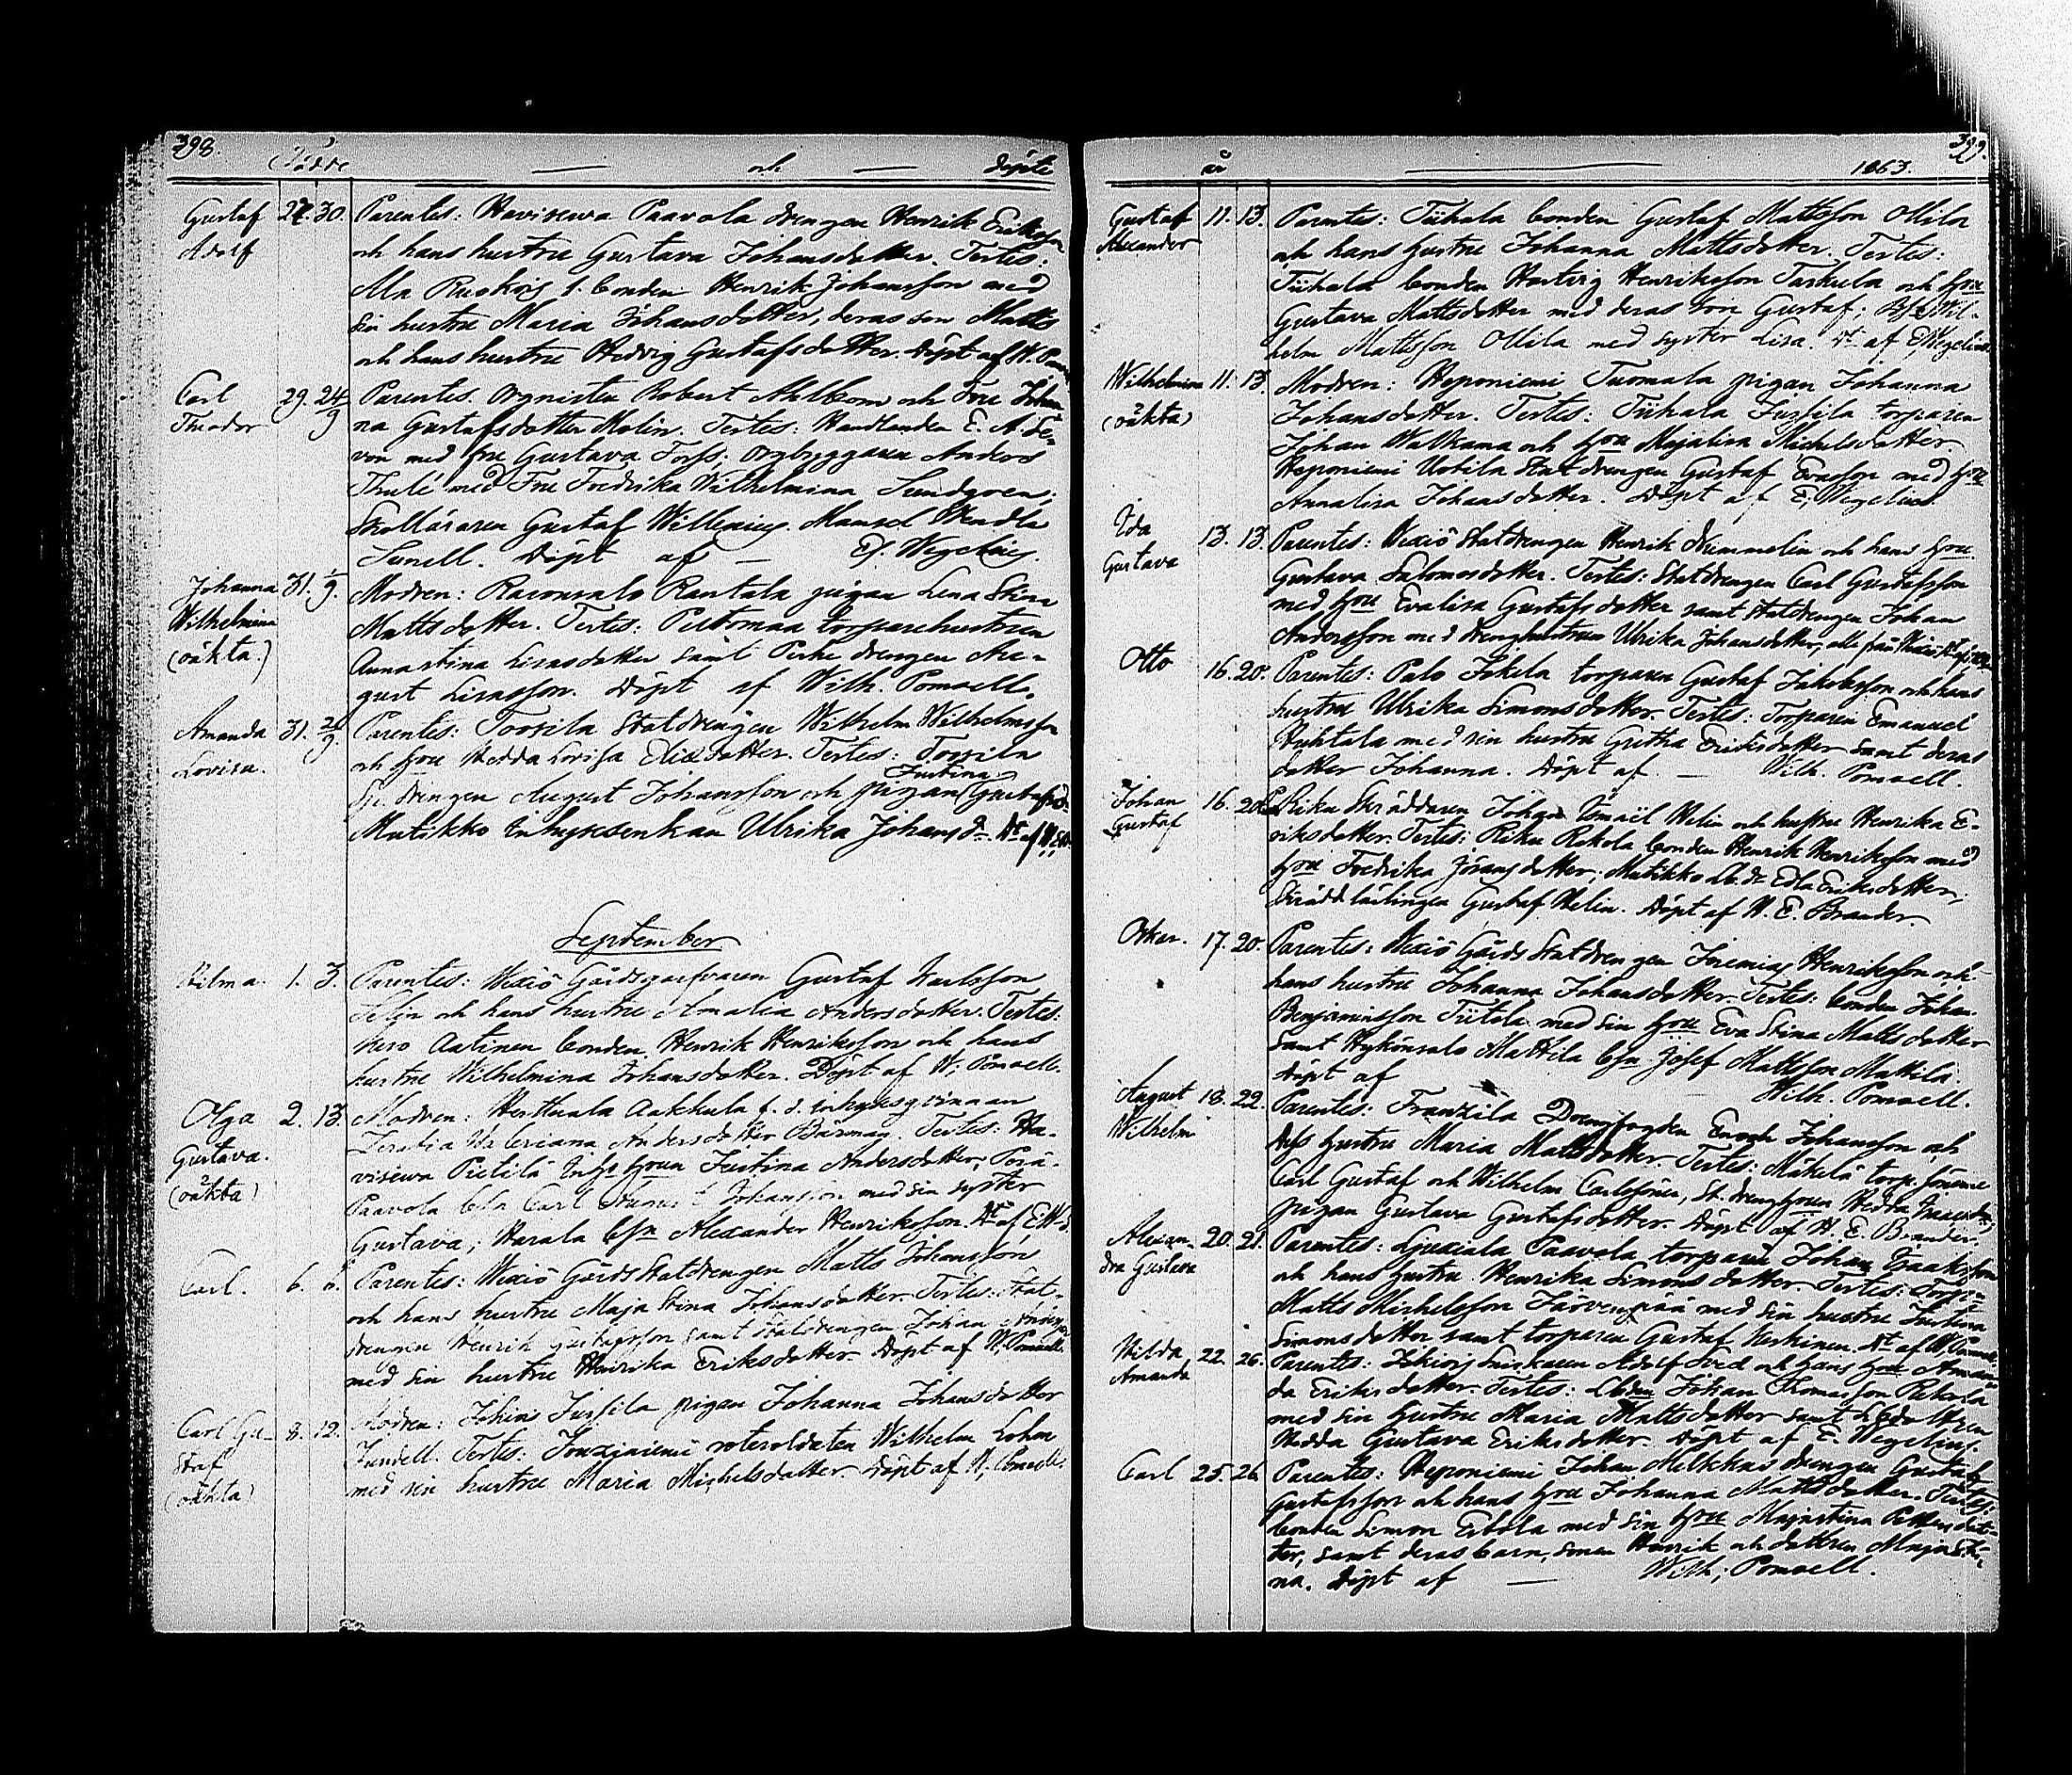 398. Födde — och — döpte
Gustaf 27. 30. Parentes: Havisewa Paavola drengen Henrik Eriksson
Adolf och hans hustru Gustava Johansdotter. Testes:
Ala Ruskois 1. bonden Henrik Johansson med
sin hustru Maria Johansdotter, deras son Matts
och hans hustru Hedvig Gustafsdotter. Döpt af W. Pom
Carl 29. 24/9 Parentes. Orgnisten Robert Ahlbom och Fru Johan-
Theodor na Gustafsdotter Molin. Testes: Handlanden E. A. Se-
von med fru Gustava Forss; orgbyggaren Anders
Thulé med Fru Fredrika Wilhelmina Sundgren;
Skolläraren Gustaf Willenius. Mamsel Wendla
Sunell. Döpt af — Ef. Wegelius.
Johanna 31. 1/9. Modren: Raconsalo Rantala pigan Lena Stina
Wilhelmina Mattsdotter. Testes: torparehustrun
(oäkta.) Annastina Lisasdotter samt drengen Au-
gust Lisasson. Döpt af Wilh. Pomoell.
Amanda 31. 2/9. Parentes: Toorila Statdrengen Wilhelm Wilhelmsson
Lovisa. och hru Hedda Lovisa Eliædotter. Testes: Toorila
Justina
St. drengen August Johansson och pigan Gustafsd.
Matikko inhysesenkan Ulrika Johansdr. Dt af
September
Hilma. 1. 3. Parentes: Wexiö Gårds Gustaf Karlsson
Selin och hans hustru Amalia Andersdotter. Testes:
Aatinen bonden Henrik Henriksson och hans
hustru Wilhelmina Johansdotter. Döpt af W; Pomoell.
Olga 2. 13. Modren: Herttuala Aakkula f. d. inhysesqvinnan
Gustava. Andersdotter Bärman. Testes: Ha-
(oäkta) visewa Pietilä Inhs hrun Justina Andersdotter; Perä-
Paavola bsn Carl August Johansson med sin syster
Gustava; Harala bsn Alexander Henriksson. Dt af E. W-s.
Carl. 6. 6. Parentes: Wexiö Gårds Statdrengen Matts Johansson
och hans hustru Maja Stina Johansdotter. Testes: Stat-
drengen Henrik Gustafsson samt Statdrengen Johan
med sin hustru Henrika Eriksdotter. Döpt af W; Pomoell
Carl Gu- 8. 12. Modren: Jokiois Jussila pigan Johanna Johansdotter
staf Jundell. Testes: rotesoldaten Wilhelm Lohm
(oäkta) med sin hustru Maria Michelsdotter. Döpt af W; Pomoell.
år — 1863. 399.
Gustaf 11. 13. Parentes: Tiihala bonden Gustaf Mattsson Ollila
Alexander och hans hustru Johanna Mattsdotter. Testes:
Tiihala bonden Hartvig Henriksson Tarkula och hru
Gustava Mattsdotter med deras son Gustaf; Bsn Wil-
helm Mattsson Ollila med syster Lisa. Dt af E, Wegelius.
Wilhelmina 11. 13. Modren: Heponiemi Tuomala pigan Johanna
(oäkta) Johansdotter. Testes: Tiihala Jussila torparen
Johan Walkama och hru Majalisa Michelsdotter
Heponiemi Uotila Statdrengen Gustaf Evasson med hru
Annalisa Johansdotter. Döpt af E, Wegelius
Ida 13. 13. Parentes: Wexiö Statdrengen Henrik Drummelin och hans hru
Gustava Gustava Salomosdotter. Testes: Statdrengen Carl Gustafsson
med hru Evalisa Gustafsdotter samt Statdrengen Johan
Andersson med drenghustrun Ulrika Johansdotter, alla från Wexiö
Otto 16. 20. Parentes: Palo Iskela torparen Gustaf Jakobsson och hans
hustru Ulrika Simonsdotter. Testes: Torparen Emanuel
Huhtala med sin hustru Gretha Eriksdotter samt deras
dotter Johanna. Döpt af — Wilh. Pomoell.
Johan 16. 20. Riku Skräddaren Johan Ismaël Helin och hustru Henrika E-
Gustaf riksdotter. Testes: Riku Rekola bonden Henrik Henriksson med
hru Fredrika Jöransdotter; Matikko Lb. dr Edla Eriksdotter;
Skräddlärlingen Gustaf Helin. Döpt af H. E. Brander
Oskar. 17. 20. Parentes: Wexiö Gårds Statdrengen Jeremias Henriksson och
hans hustru Johanna Johansdotter. Testes: bonden Johan
Benjaminsson Tiitola med sin hru Eva Stina Mattsdotter
samt Hykönsalo Mattila bsn Josef Mattsson Mattila.
Döpt af Wilh. Pomoell.
August 18. 22. Parentes: Franzila Drengfogden Enoch Johansson och
Wilhelm dess hustru Maria Mattsdotter. Testes: Mäkelä torp. söner
Carl Gustaf och Wilhelm Carlssöner, St. dreng hrun Hedda
pigan Gustava Gustafsdotter. Döpt af H. E. Brander.
Alexan- 20. 21. Parentes: Ljuxiala Paavola torparen Johan Isaaksson
dra Gustava och hans hustru Henrika Simonsdotter. Testes: Torp.
Matts Michelsson Järvenpää med sin hustru Justina
Simonsdotter samt torparen Gustaf Heikkinen. Dt af W. Pomoell.
Hilda 22. 26. Parentes: Jokiois Snickaren Adolf och hans hru Aman-
Amanda da Eriksdotter. Testes: Lbden Johan Thomasson Rekola
med sin hustru Maria Mattsdotter samt Lbdottren
Hedda Gustava Eriksdotter. Döpt af E. Wegelius.
Carl 25. 26. Parentes: Heponiemi Johan Melkkas drengen Gustaf
Gustafsson och hans hru Johanna Mattsdotter. Testes:
bonden Simon Erkola med sin hru Majastina Pettersdot-
ter, samt deras barn, sonen Henrik och dottren Maja Sti-
na. Döpt af — Wilh; Pomoell.